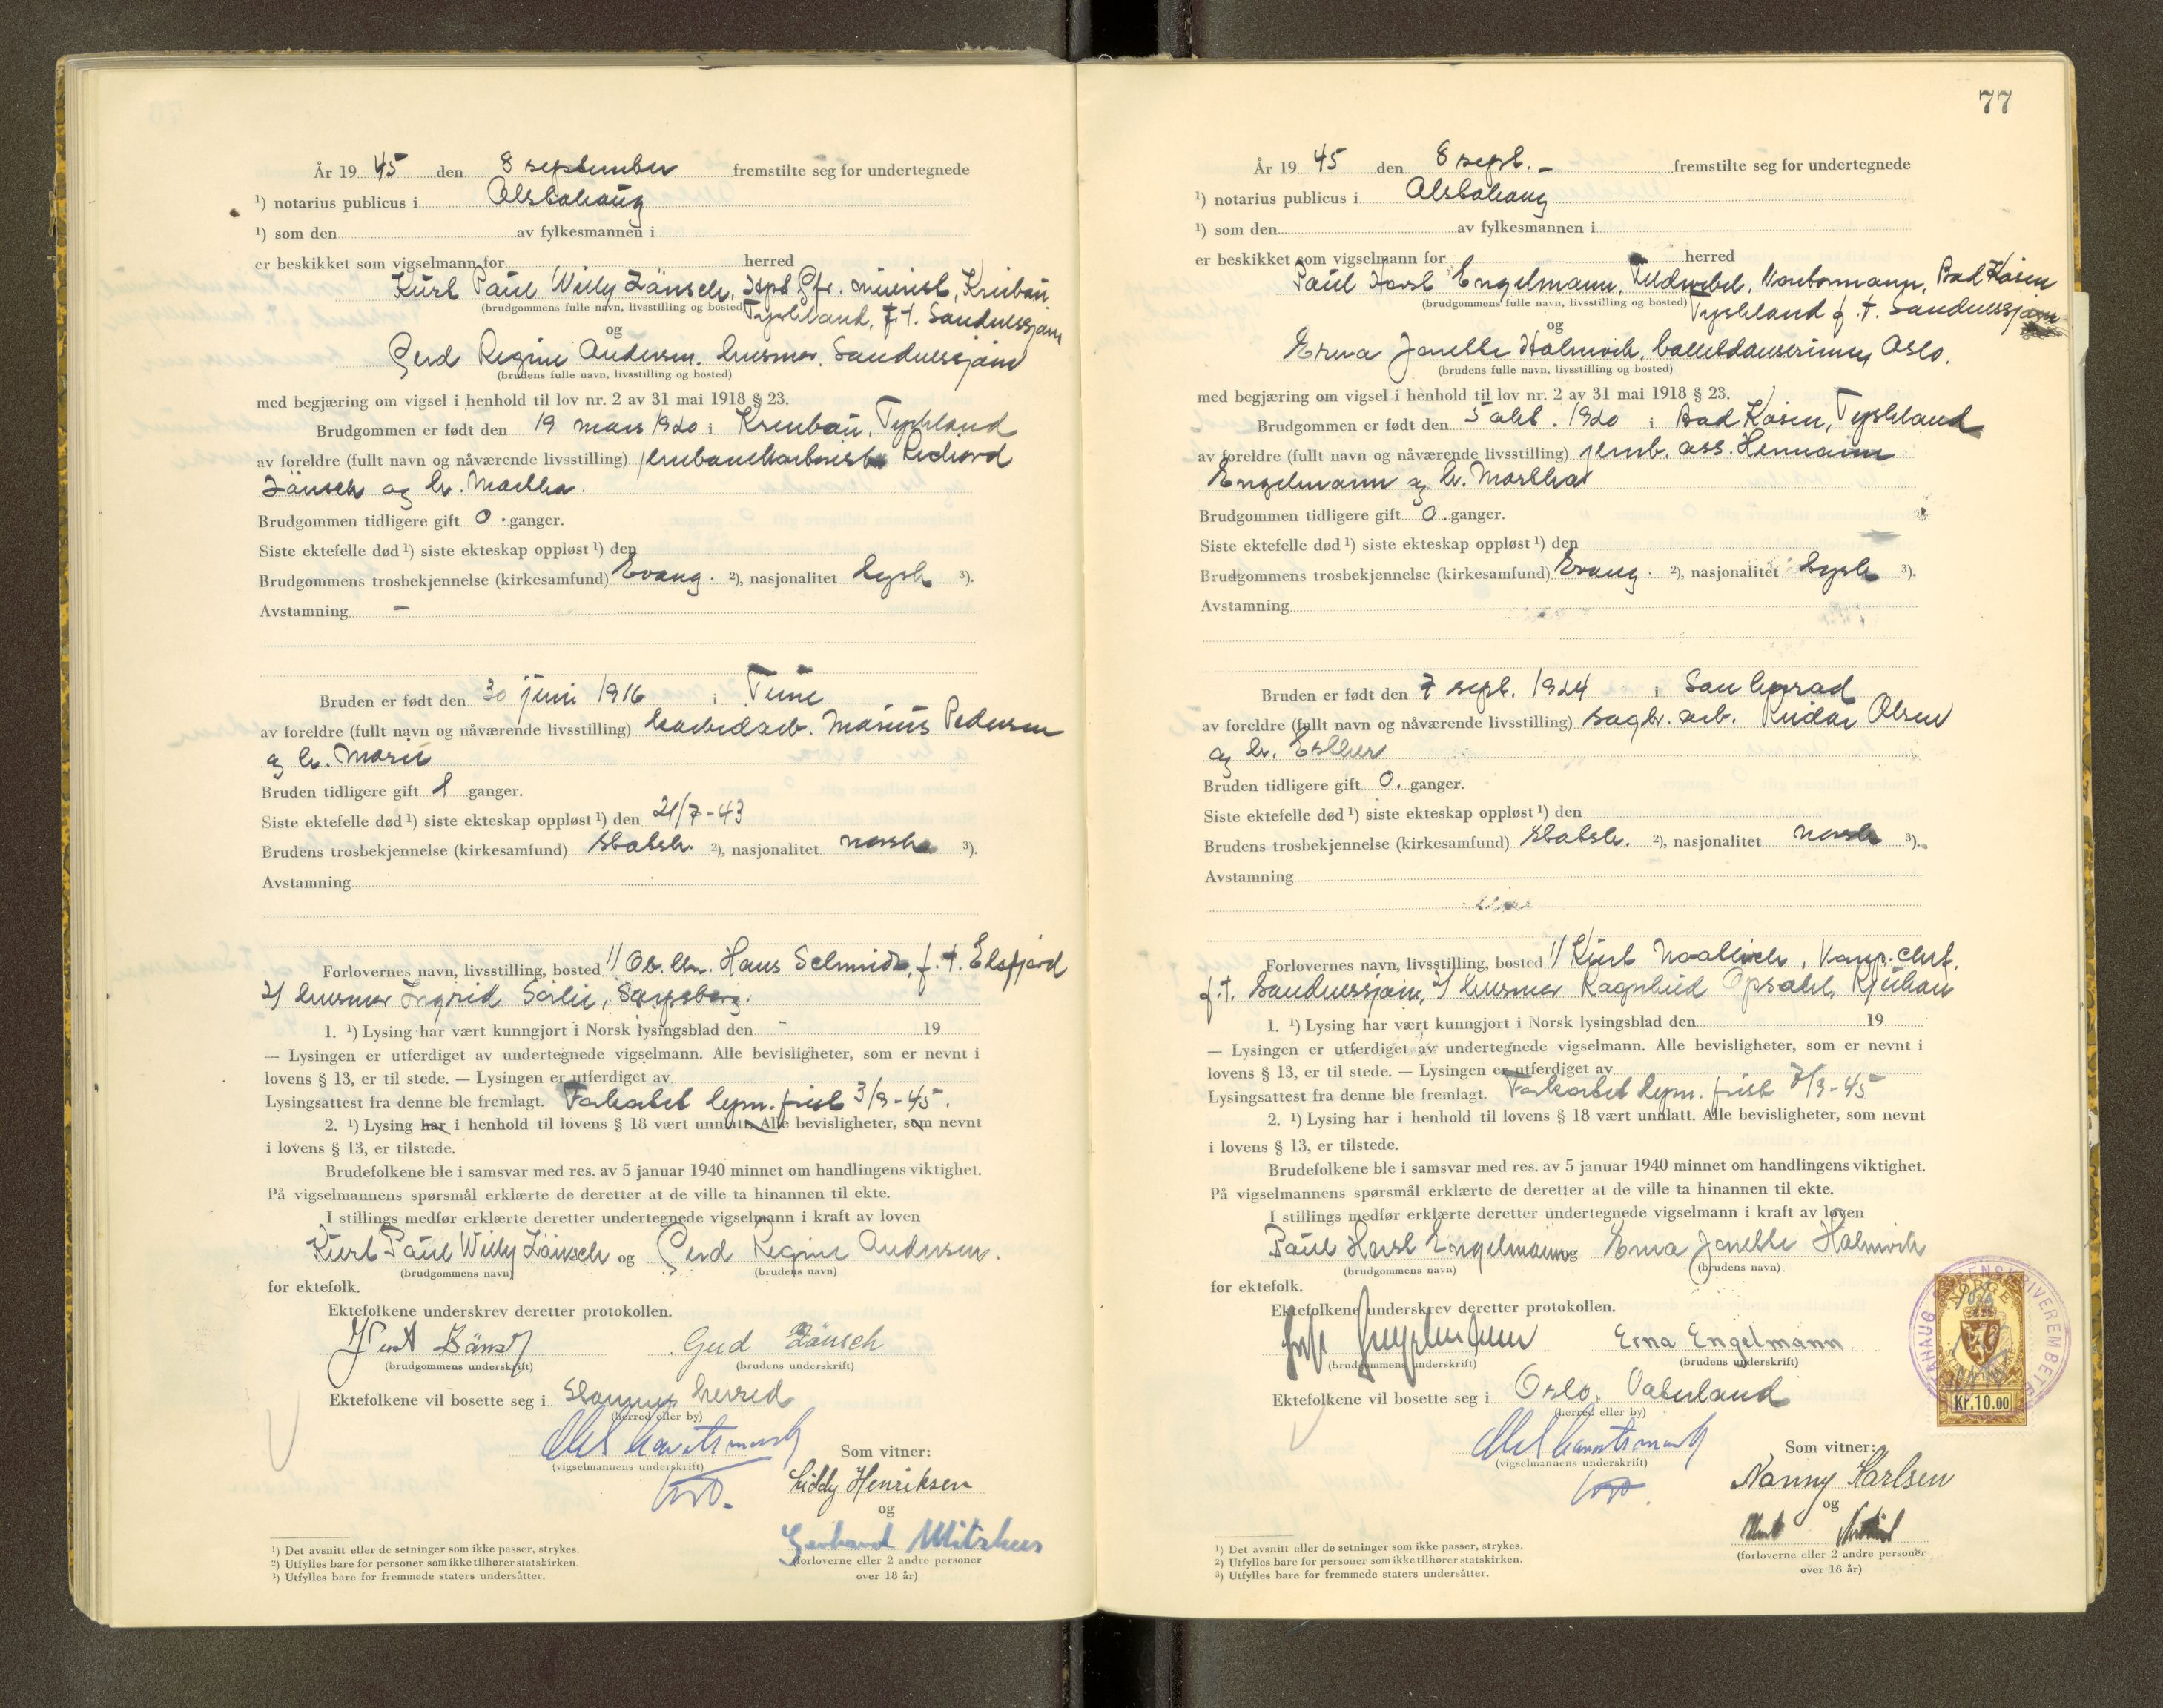 År 19 45 den 8 september fremstilte seg for undertegnede
¹) notarius publicus i Alstahaug
¹) som den av fylkesmannen i
er beskikket som vigselmann for herred
Kurt Paul Willy Zänsch, Gfr.
(brudgommens fulle navn, livsstilling og bosted) Tyskland, f.t. Sandnessjøen
og
Gerd Regine Andersen, husmor, Sandnessjøen
(brudens fulle navn, livsstilling og bosted)
med begjæring om vigsel i henhold til lov nr. 2 av 31 mai 1918 § 23.
Brudgommen er født den 19 mars 1920 i Tyskland
av foreldre (fullt navn og nåværende livsstilling) Richard
Zänsch og h. Martha.
Brudgommen tidligere gift 0. ganger.
Siste ektefelle død ¹) siste ekteskap oppløst ¹) den
Brudgommens trosbekjennelse (kirkesamfund) Evang. ²), nasjonalitet tysk ³).
Avstamning –
Bruden er født den 30 juni 1916 i Tune
av foreldre (fullt navn og nåværende livsstilling) Marius Pedersen
og h. Marie
Bruden tidligere gift 1 ganger.
Siste ektefelle død ¹) siste ekteskap oppløst ¹) den 21/7-43
Brudens trosbekjennelse (kirkesamfund) statsk. ²), nasjonalitet norsk ³).
Avstamning
Forlovernes navn, livsstilling, bosted 1/ Hans Schmidt, f.t. Elsfjord
2/ husmor Ingrid Sørlie, Sarpsborg.
1. ¹) Lysing har vært kunngjort i Norsk lysingsblad den - 19
— Lysingen er utferdiget av undertegnede vigselmann. Alle bevisligheter, som er nevnt i
lovens § 13, er til stede. — Lysingen er utferdiget av
Lysingsattest fra denne ble fremlagt. Forkortet lysn. frist 3/9-45.
2. ¹) Lysing har i henhold til lovens § 18 vært unnlatt. Alle bevisligheter, som nevnt
i lovens § 13, er tilstede.
Brudefolkene ble i samsvar med res. av 5 januar 1940 minnet om handlingens viktighet.
På vigselmannens spørsmål erklærte de deretter at de ville ta hinannen til ekte.
I stillings medfør erklærte deretter undertegnede vigselmann i kraft av loven
Kurt Paul Willy Zänsch og Gerd Regine Andersen.
(brudgommens navn) (brudens navn)
for ektefolk.
Ektefolkene underskrev deretter protokollen.
Kurt Zänsch Gerd Zänsch
(brudgommens underskrift) (brudens underskrift)
Ektefolkene vil bosette seg i herred
(herred eller by)
(vigselmannens underskrift) Som vitner:
Henriksen
og
Gerhard
(forloverne eller 2 andre personer
over 18 år)
¹) Det avsnitt eller de setninger som ikke passer, strykes.
²) Utfylles bare for personer som ikke tilhører statskirken.
³) Utfylles bare for fremmede staters undersåtter.
77
År 19 45 den 8 sept. – fremstilte seg for undertegnede
¹) notarius publicus i Alstahaug
¹) som den av fylkesmannen i
er beskikket som vigselmann for herred
Paul Horst Engelmann, Feldwebel, Bad Kösen
(brudgommens fulle navn, livsstilling og bosted) Tyskland f.t. Sandnessjøen
og
Erna Jonette Holmvik, ballettdanserinne, Oslo.
(brudens fulle navn, livsstilling og bosted)
med begjæring om vigsel i henhold til lov nr. 2 av 31 mai 1918 § 23.
Brudgommen er født den 5 okt. 1920 i Bad Kösen, Tyskland
av foreldre (fullt navn og nåværende livsstilling) jernb. ass. Hermann
Engelmann og h. Martha
Brudgommen tidligere gift 0. ganger.
Siste ektefelle død ¹) siste ekteskap oppløst ¹) den
Brudgommens trosbekjennelse (kirkesamfund) Evang. ²), nasjonalitet tysk ³).
Avstamning
Bruden er født den 7 sept. 1924 i Sauherad
av foreldre (fullt navn og nåværende livsstilling) sagbr. arb. Reidar Olsen
og h. Esther
Bruden tidligere gift 0. ganger.
Siste ektefelle død ¹) siste ekteskap oppløst ¹) den
Brudens trosbekjennelse (kirkesamfund) statsk. ²), nasjonalitet norsk ³).
Avstamning
Forlovernes navn, livsstilling, bosted 1/ Kurt
f.t. Sandnessjøen, 2/ husmor Ragnhild Opsahl, Rjukan
1. ¹) Lysing har vært kunngjort i Norsk lysingsblad den 19
— Lysingen er utferdiget av undertegnede vigselmann. Alle bevisligheter, som er nevnt i
lovens § 13, er til stede. — Lysingen er utferdiget av
Lysingsattest fra denne ble fremlagt. Forkortet lysn. frist 7/9-45
2. ¹) Lysing har i henhold til lovens § 18 vært unnlatt. Alle bevisligheter, som nevnt
i lovens § 13, er tilstede.
Brudefolkene ble i samsvar med res. av 5 januar 1940 minnet om handlingens viktighet.
På vigselmannens spørsmål erklærte de deretter at de ville ta hinannen til ekte.
I stillings medfør erklærte deretter undertegnede vigselmann i kraft av loven
Paul Horst Engelmann og Erna Jonette Holmvik
(brudgommens navn) (brudens navn)
for ektefolk.
Ektefolkene underskrev deretter protokollen.
Engelmann Erna Engelmann
(brudgommens underskrift) (brudens underskrift)
Ektefolkene vil bosette seg i Oslo,
(herred eller by)
NORGE
Kr. 10.00
(vigselmannens underskrift) Som vitner:
Nanny Karlsen
og
(forloverne eller 2 andre personer
over 18 år)
¹) Det avsnitt eller de setninger som ikke passer, strykes.
²) Utfylles bare for personer som ikke tilhører statskirken.
³) Utfylles bare for fremmede staters undersåtter.